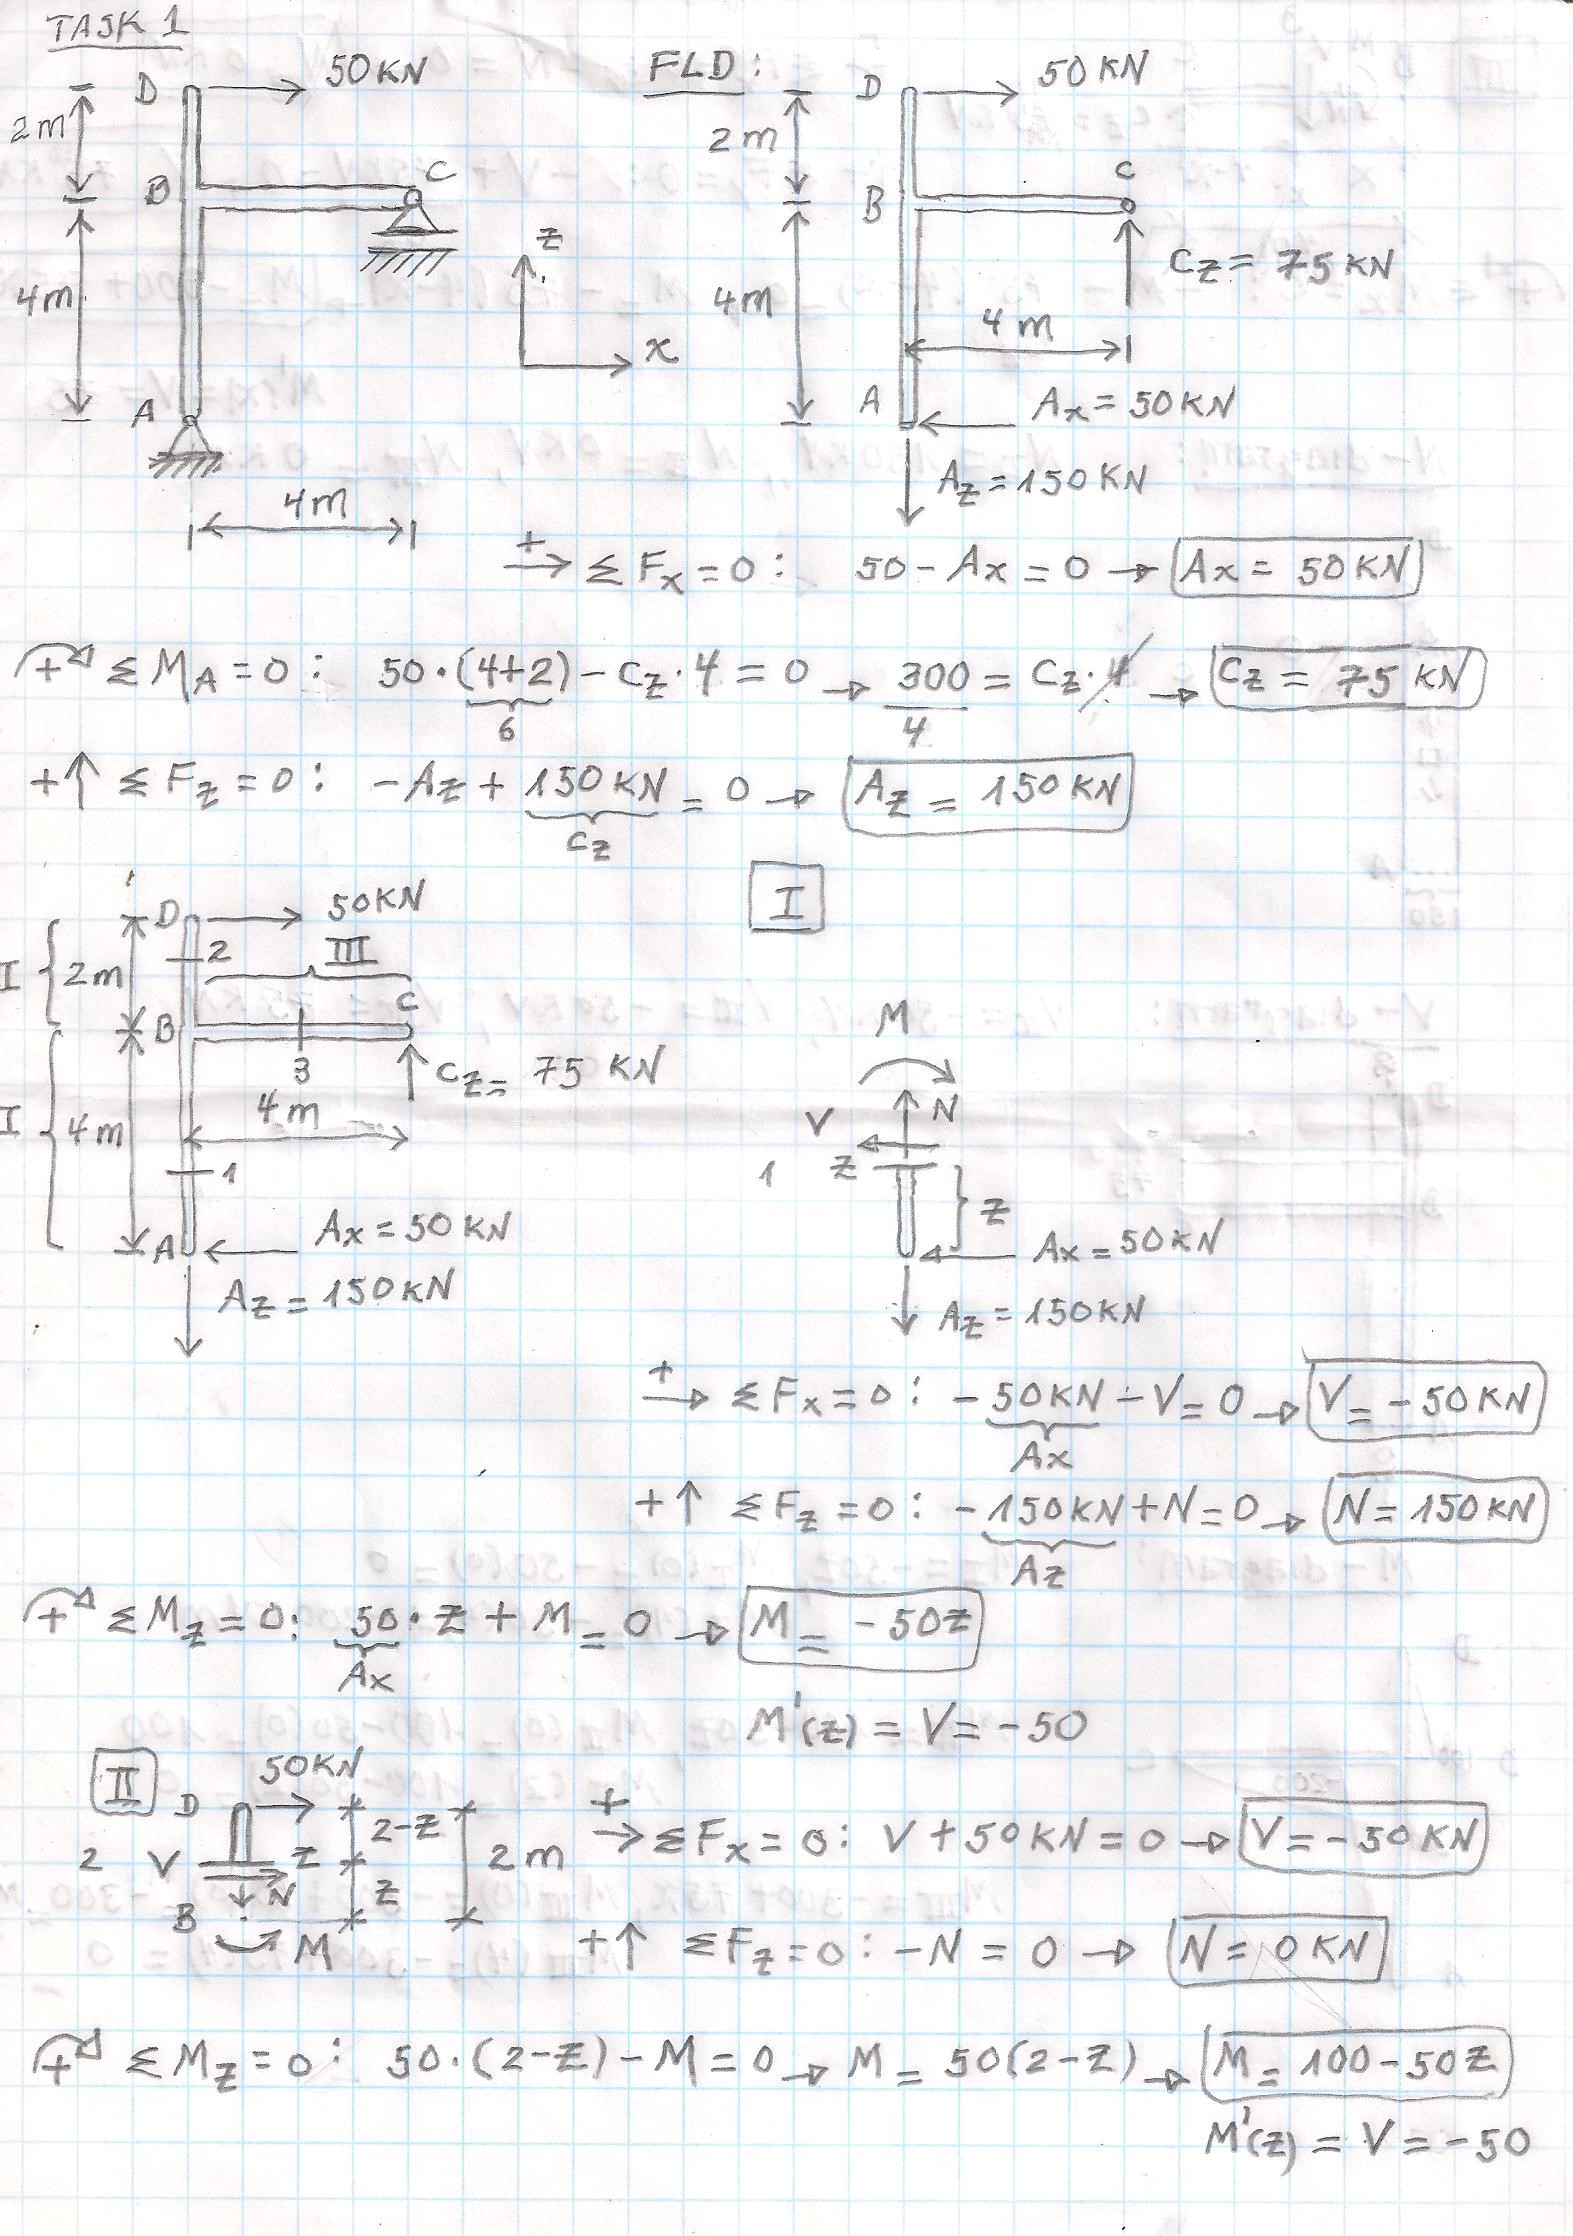 TASK 1
D 50 KN
2m
B C
4m
z
x
A
4m
FLD:
D 50 KN
2m
B C
Cz = 75 KN
4m
4m
A Ax = 50 KN
Az = 150 KN
+→ ΣFx = 0: 50 - Ax = 0 → Ax = 50 KN
+ ΣMA = 0: 50·(4+2) - Cz·4 = 0 → 300/4 = Cz·4 → Cz = 75 KN
6
+↑ ΣFz = 0: -Az + 150 KN = 0 → Az = 150 KN
Cz
D 50 KN
I 2m 2 III
B C
3 Cz = 75 KN
I 4m 4m
1
A Ax = 50 KN
Az = 150 KN
I
M
V N
1 z
z
Ax = 50 KN
Az = 150 KN
+→ ΣFx = 0: -50 KN - V = 0 → V = -50 KN
Ax
+↑ ΣFz = 0: -150 KN + N = 0 → N = 150 KN
Az
+ ΣMz = 0: 50·z + M = 0 → M = -50z
Ax
M'(z) = V = -50
II 50 KN
D
2-z
2 V z 2m
N z
B
M
+→ ΣFx = 0: V + 50 KN = 0 → V = -50 KN
+↑ ΣFz = 0: -N = 0 → N = 0 KN
+ ΣMz = 0: 50·(2-z) - M = 0 → M = 50(2-z) → M = 100 - 50z
M'(z) = V = -50